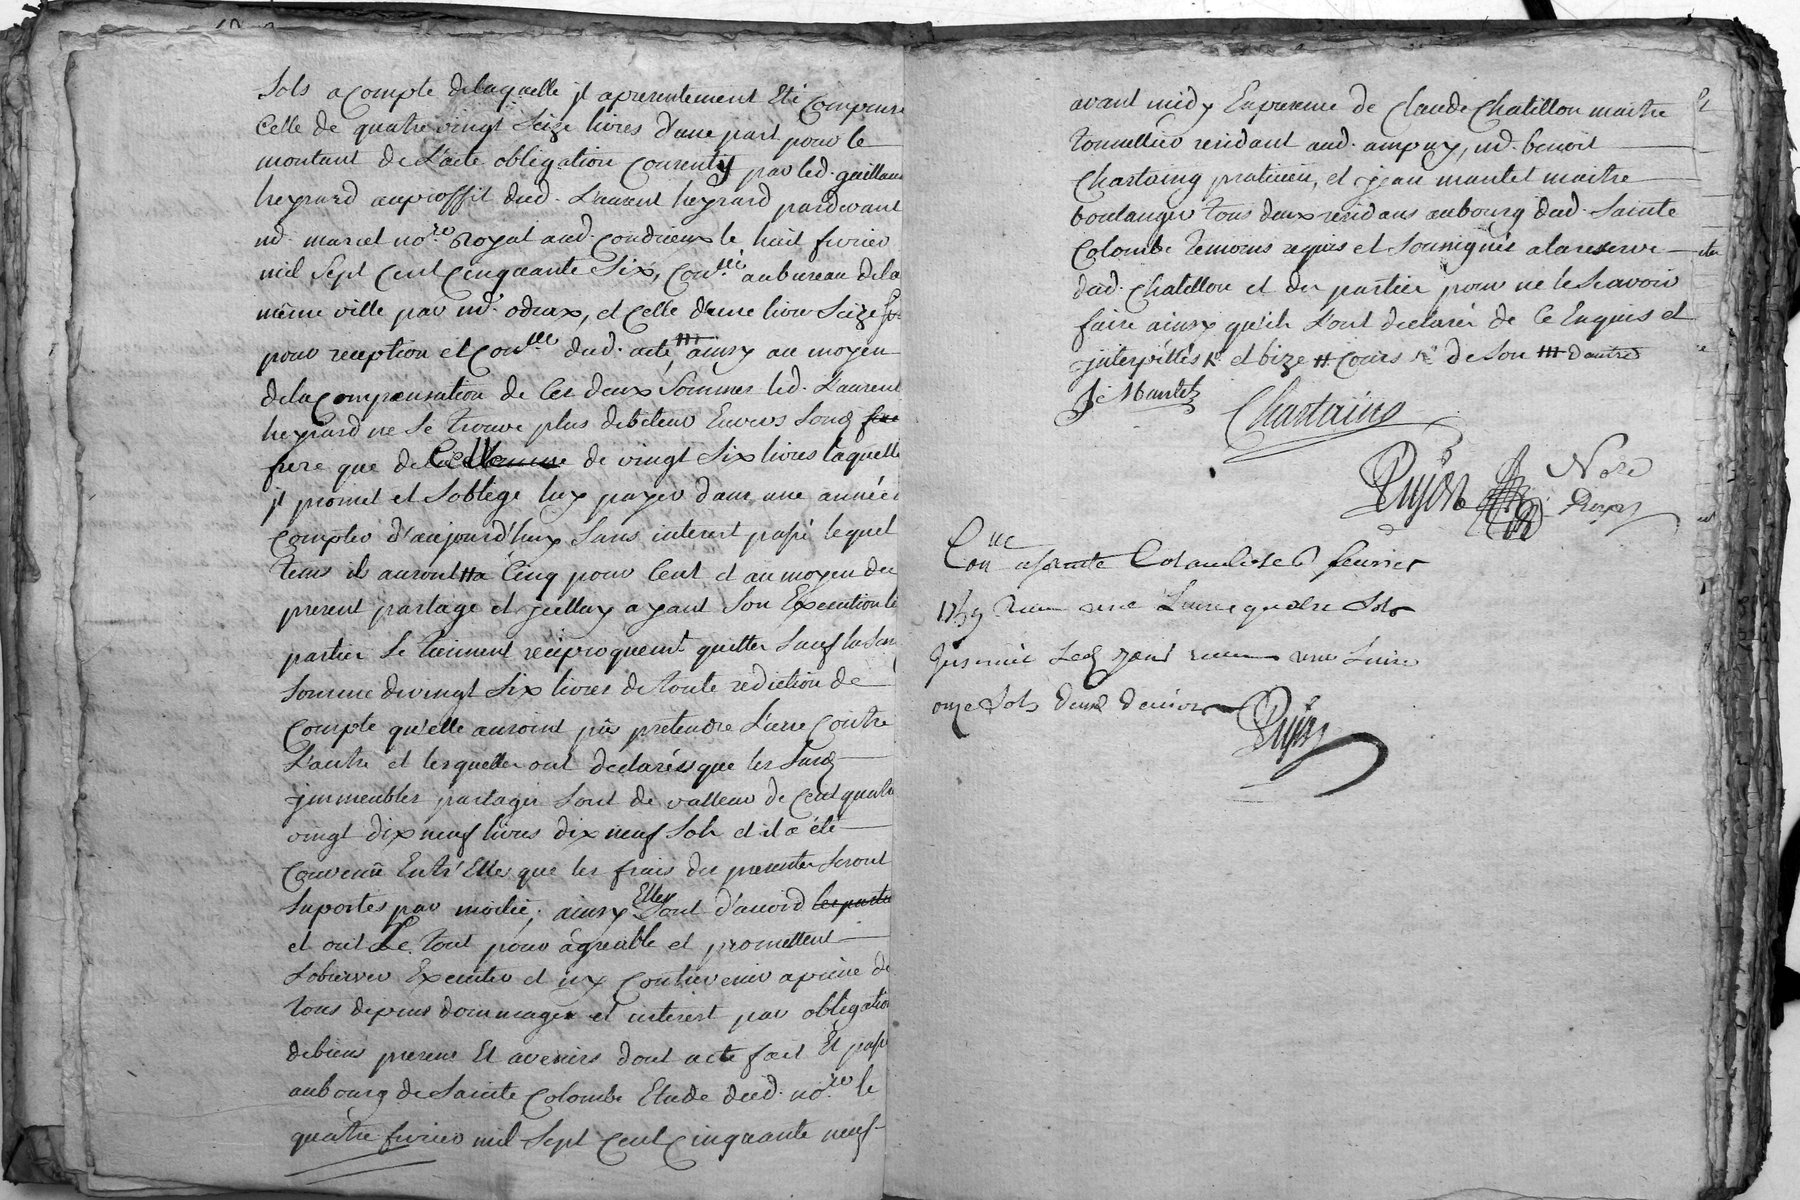 sols a compte de laquelle jl apresentement Eté compensé
celle de quatre vingt seize livres d'une part pour le
montant de L'acte obligation consenty par led. guillau
heyrard auproffit dud. Laurent heyrard pardevant
md. marcel nore. Royal aud. condrieux le huit fevrier
mil sept cent cinquante six, conllé au bureau de la
même ville par md. odrax, et celle d'une livre seize so
pour reception et conlle dud. acte, ainsy au moyen
de la compensation de ces deux sommes led. Laurent
heyrard ne se trouve plus debiteur Envers sond
frere que de celle de vingt six livres laquelle
jl promet et soblege luy payer dans une année a
compter d'aujourd'huy sans interest passé lequel
tems ils auront cinq pour cent et au moyen du
present partage et jcelluy ayant son Execution les
parties se tiennent reciproquement quittes sauf lad
somme de vingt six livres de toute rediction de
compte qu'elle auroint pû pretendre L'une contre
L'autre et lesquelles ont declarés que les susd
jmmeubles partagés sont de valleur de cent quatre
vingt dix neuf livres dix neuf sols et il a été
convenû Entr'Elles que les frais des presentes seront
suportés par moitié, ainsy Elles sont d'accord les partie
et ont Le tout pour agreable et promettent
L'observer Executer et n'y contrevenir a peine de
tous depens dommages et interest par obligation
de biens presens Et avenirs dont acte fait Et passé
au bourg de Sainte Colombe Etude dud. nore. le
quatre fevrier mil sept cent cinquante neuf
avant midy En presence de Claude Chatillon maitre
tonnellier residant aud. ampuy, md. benoit
Chartaing praticien, et jean mantel maitre
boulanger tous deux residans au bourg dud. Sainte
Colombe temoins requis et soussignés a la reserve
dud. Chatillon et des parties pour ne le scavoir
faire ainsy qu'ils L'ont declarés de ce Enquis et
jnterpéllés et bize cours de son d'autre
J. Mantel
Chartaing
Dujon Nore
Royal
Conlle a sainte Colombe le 6 fevrier
1759 Reçu une Livre quatre sols
Jnsinué led. jour reçu une Livre
onze sols deux deniers
Dujon